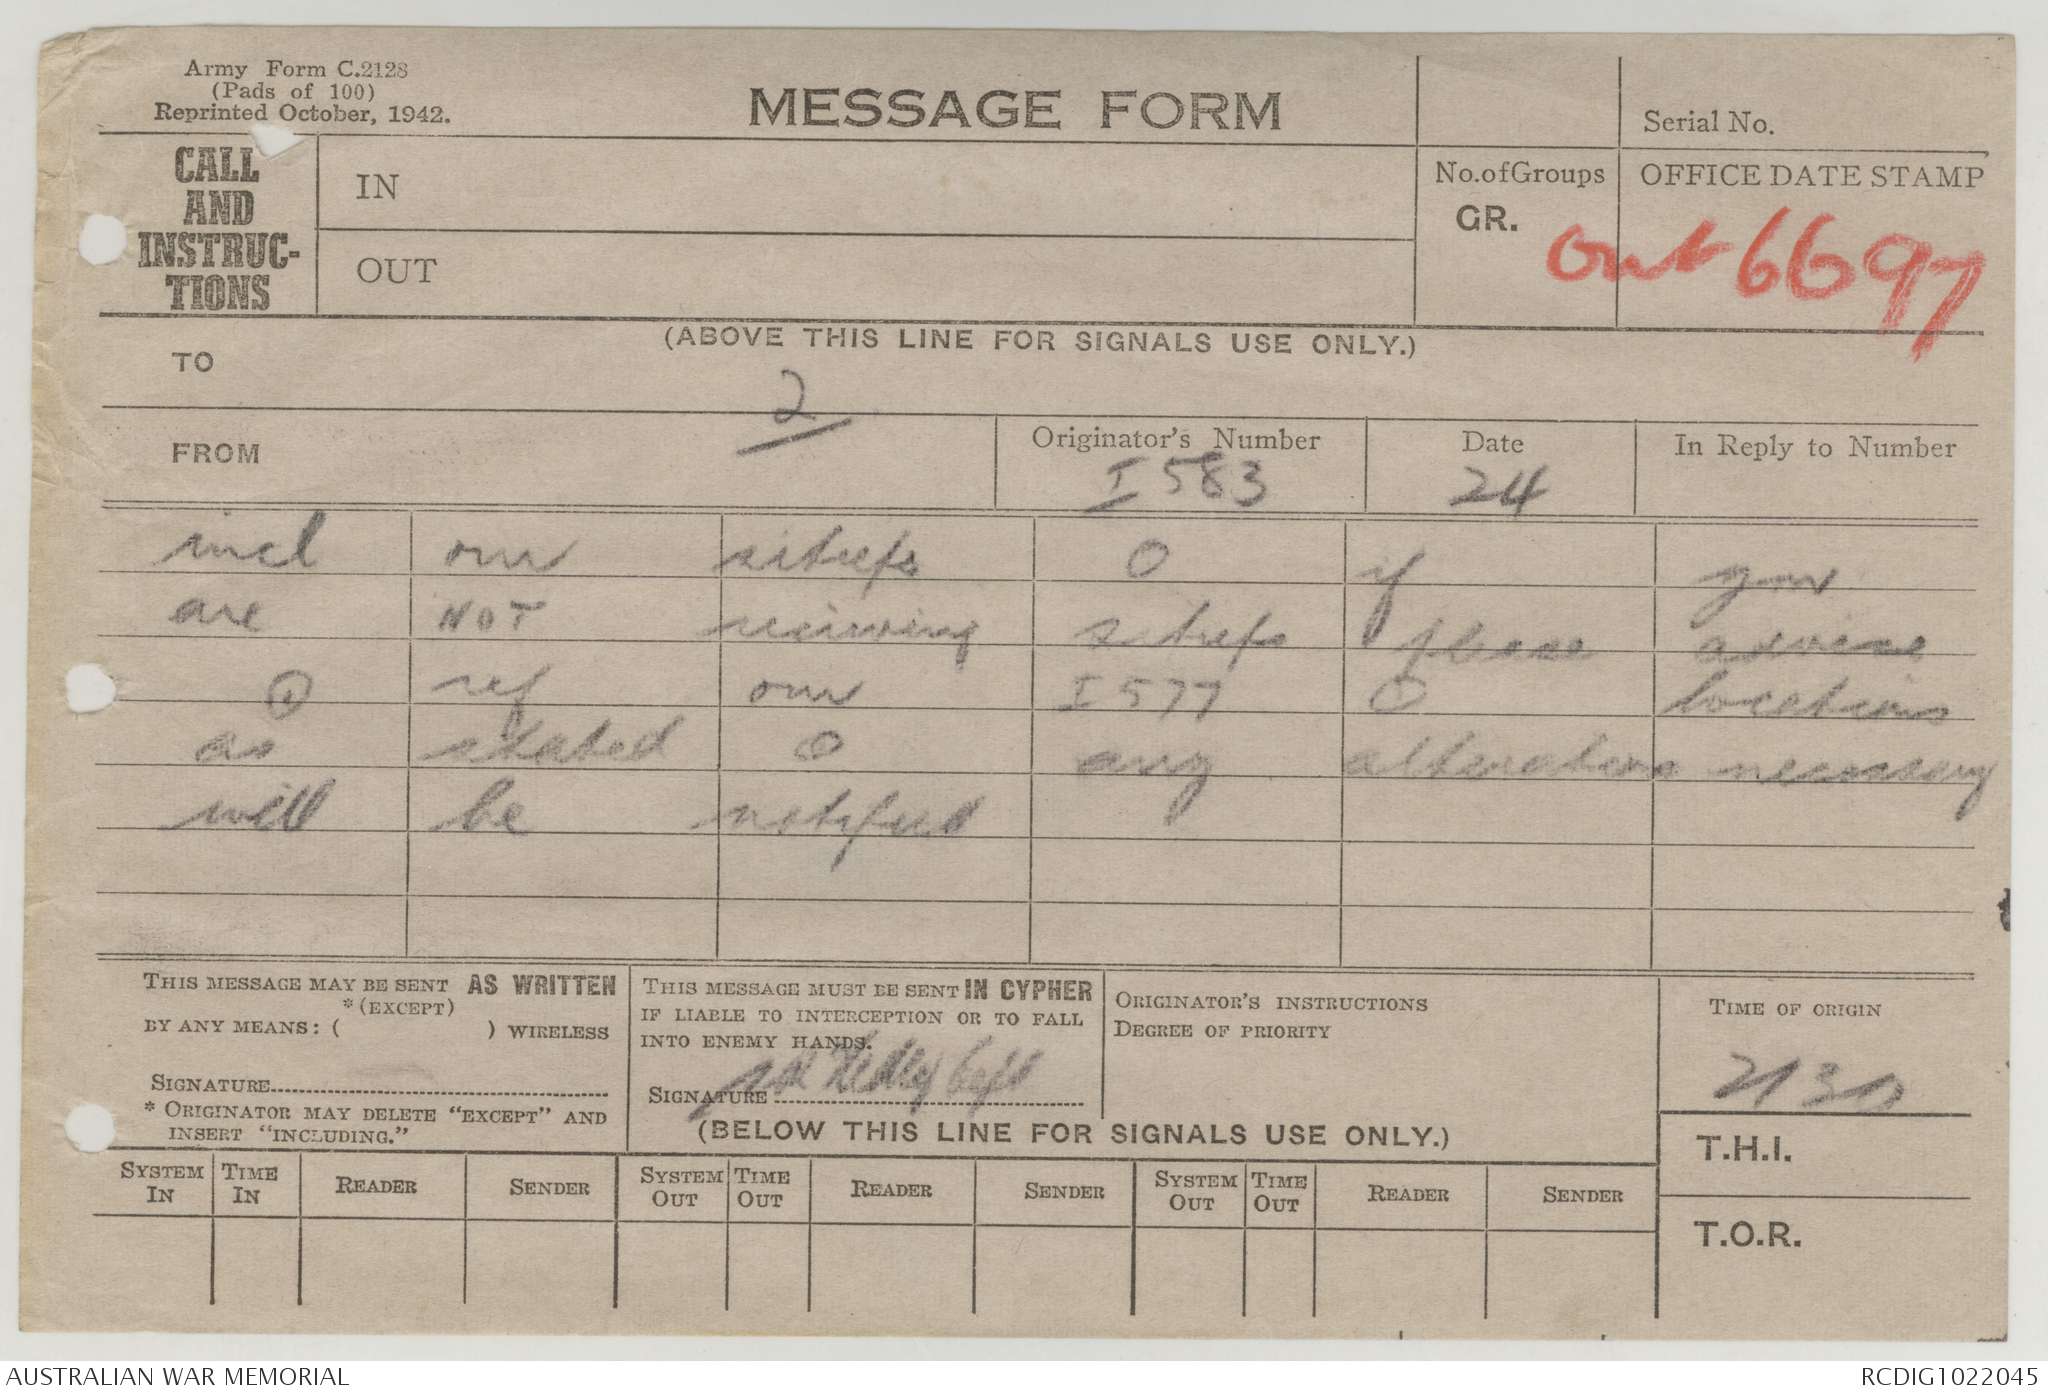 Army Form C.2128
(Pads of 100)
Reprinted October, 1942.
MESSAGE FORM
Serial No.
CALL AND INSTRUC-TIONS
IN
OUT
No. of Groups
GR.
OFFICE DATE STAMP
Out 6697
(ABOVE THIS LINE FOR SIGNALS USE ONLY.)
TO
2
FROM
Originator's Number
I 583
Date
24
In Reply to Number
incl our sitreps O if you
are NOT receiving sitreps please advise
O ref our I 577 O locations
as stated O any alterations necessary
will be notified
THIS MESSAGE MAY BE SENT AS WRITTEN
*(EXCEPT)
BY ANY MEANS: ( ) WIRELESS
SIGNATURE
* ORIGINATOR MAY DELETE "EXCEPT" AND
INSERT "INCLUDING."
THIS MESSAGE MUST BE SENT IN CYPHER
IF LIABLE TO INTERCEPTION OR TO FALL
INTO ENEMY HANDS.
SIGNATURE Hedley Capt
ORIGINATOR'S INSTRUCTIONS
DEGREE OF PRIORITY
TIME OF ORIGIN
2130
(BELOW THIS LINE FOR SIGNALS USE ONLY.)
T.H.I.
T.O.R.
SYSTEM IN TIME IN READER SENDER SYSTEM OUT TIME OUT READER SENDER SYSTEM OUT TIME OUT READER SENDER
AUSTRALIAN WAR MEMORIAL
RCDIG1022045